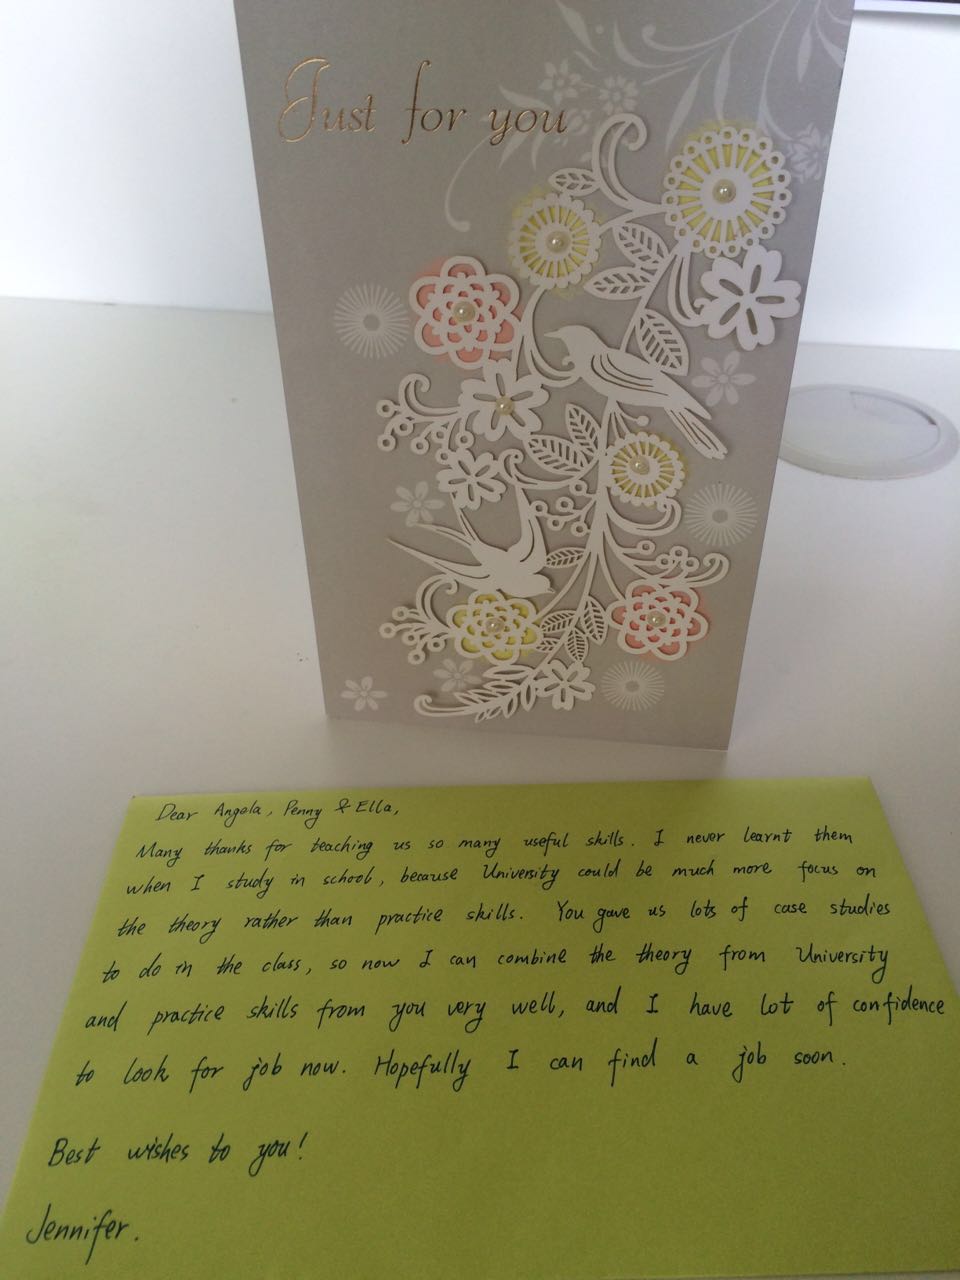 Just for you
Dear Angela, Penny & Ella,
Many thanks for teaching us so many useful skills. I never learnt them
when I study in school, because University could be much more focus on
the theory rather than practice skills. You gave us lots of case studies
to do in the class, so now I can combine the theory from University
and practice skills from you very well, and I have lot of confidence
to look for job now. Hopefully I can find a job soon.
Best wishes to you!
Jennifer.